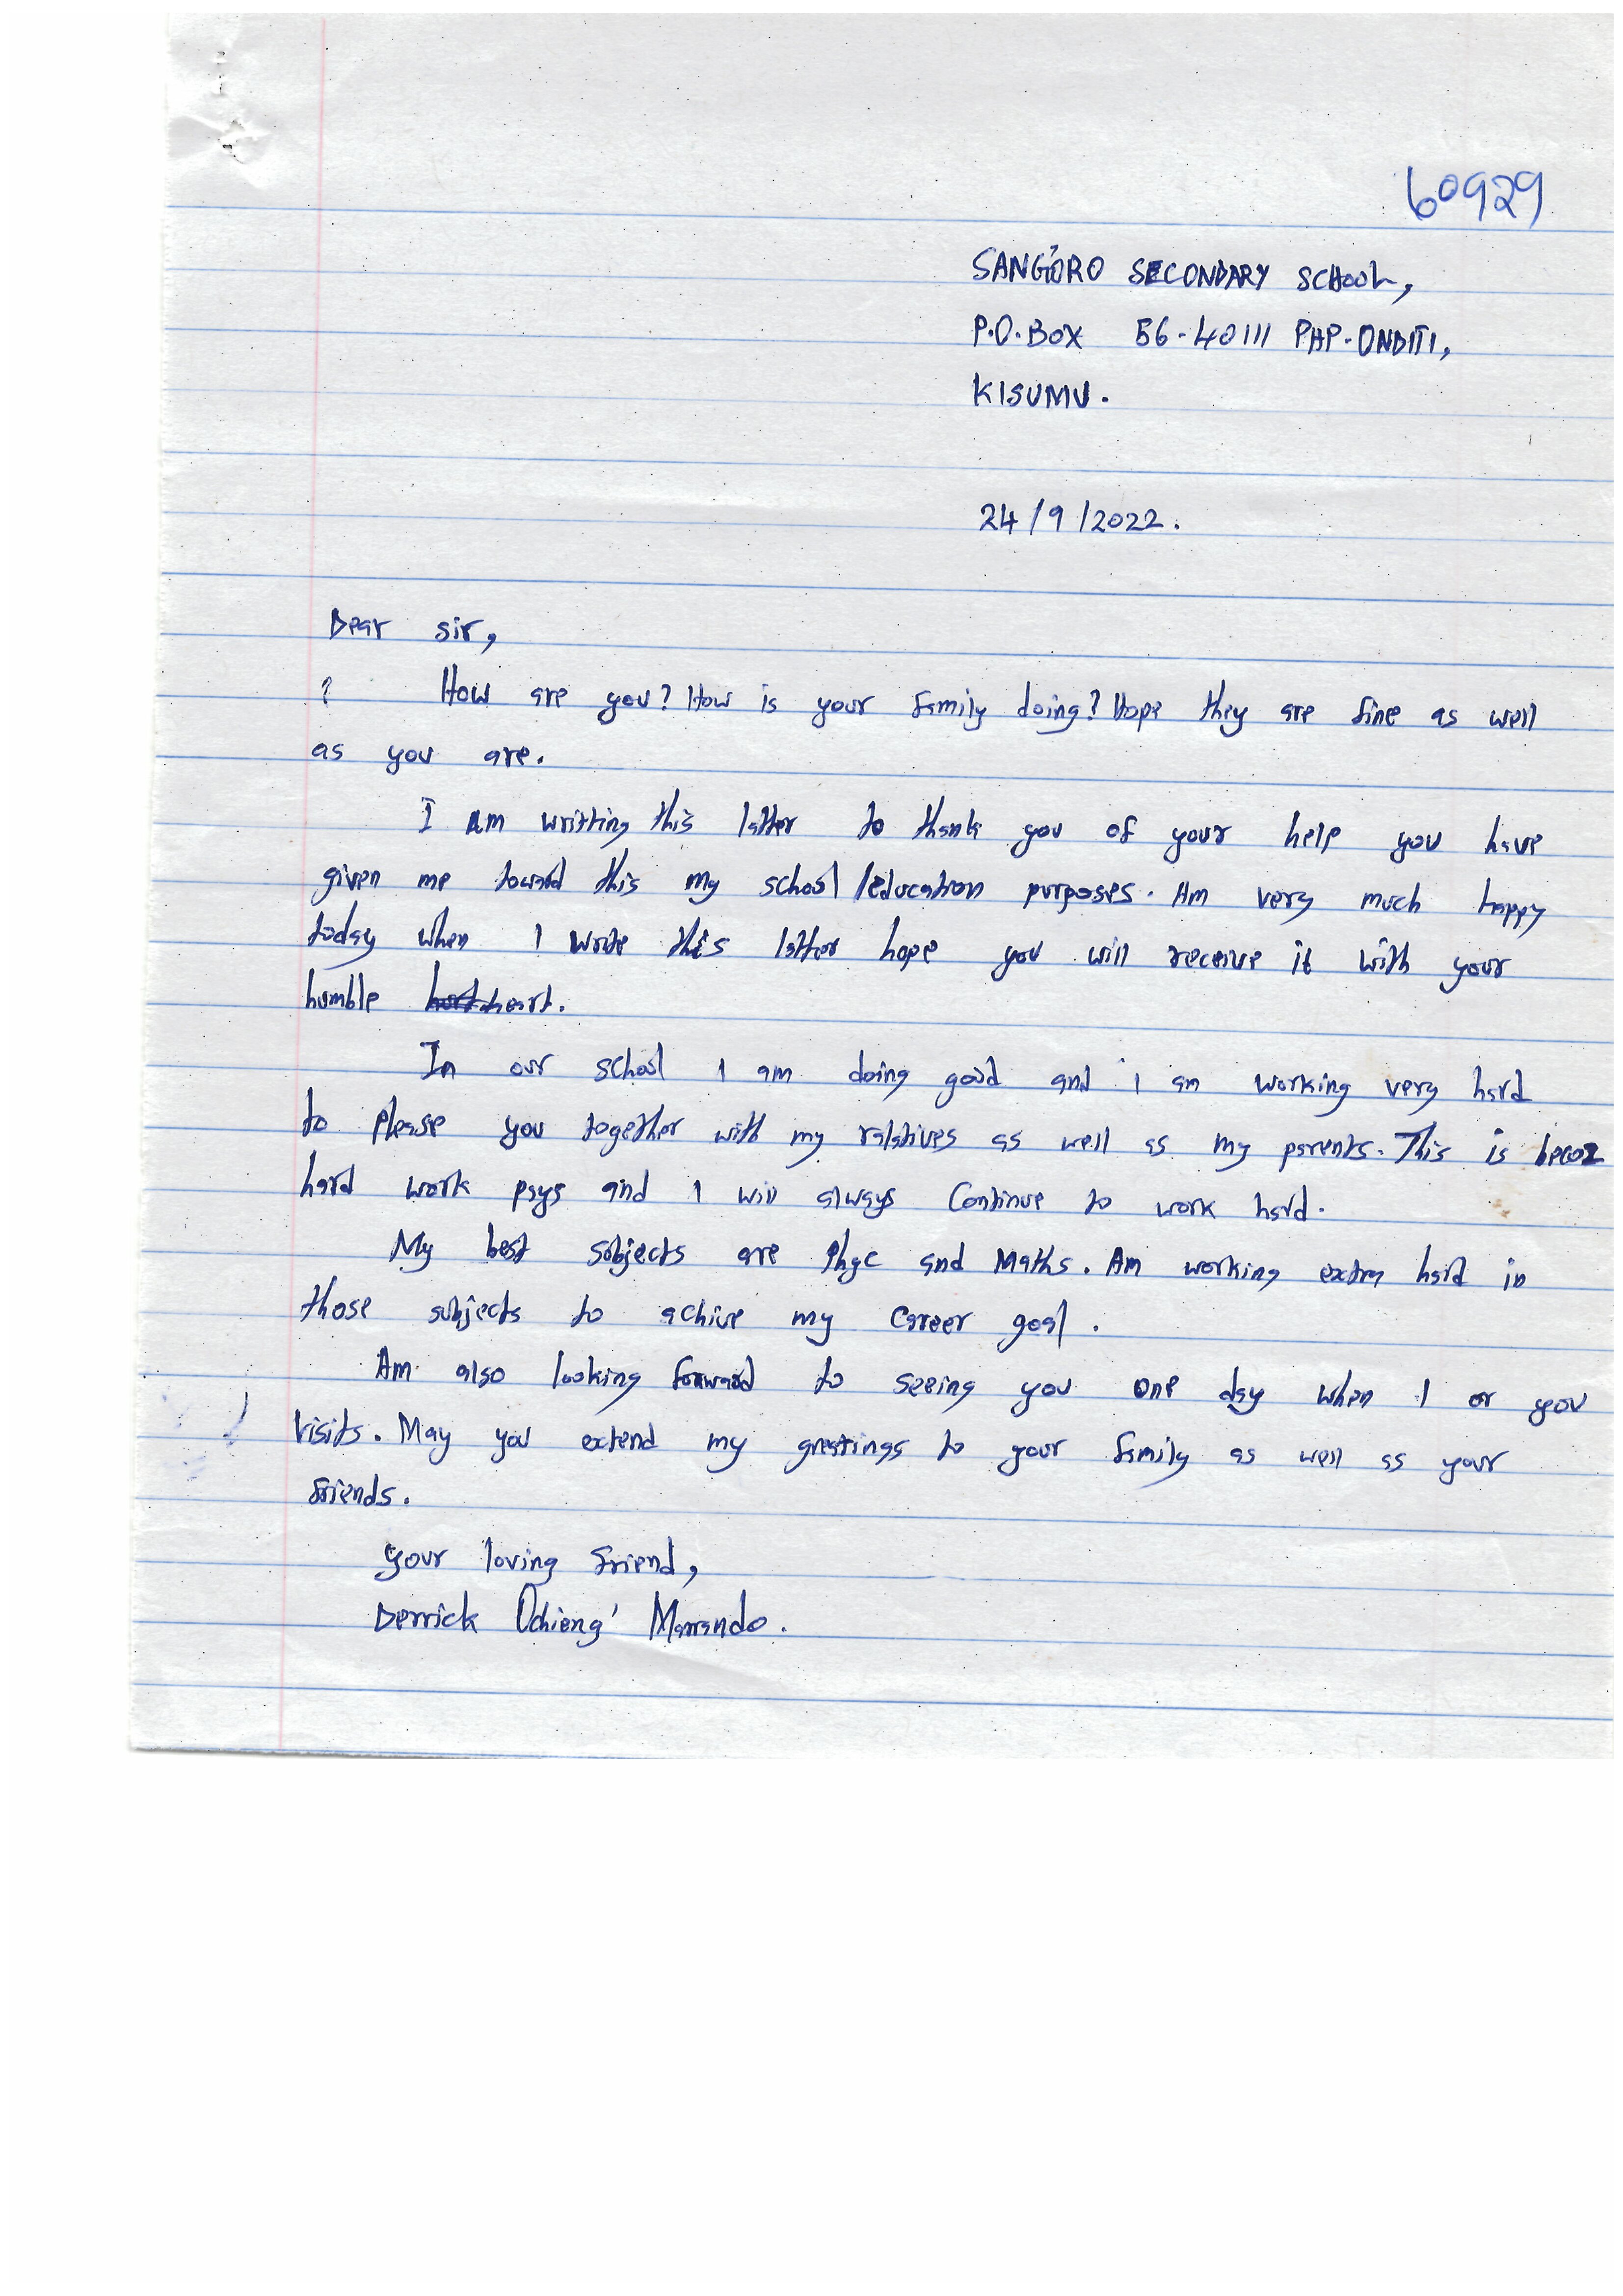 60929
SANG'ORO SECONDARY SCHOOL,
P.O. BOX 56-40111 PAP-ONDITI,
KISUMU.
24/9/2022.
Dear sir,
? How are you? How is your family doing? Hope they are fine as well
as you are.
I am writting this latter to thank you of your help you have
given me toward this my school/education purposes. Am very much happy
today when I wrote this latter hope you will receive it with your
humble heart.
In our school I am doing good and i am working very hard
to please you together with my relatives as well as my parents. This is becoz
hard work pays and I will always continue to work hard.
My best subjects are Phyc and Maths. Am working extra hard in
those subjects to achive my career goal.
Am also looking forward to seeing you one day when I or you
visits. May you extend my greetings to your family as well as your
friends.
your loving friend,
Derrick Ochieng' Marando.